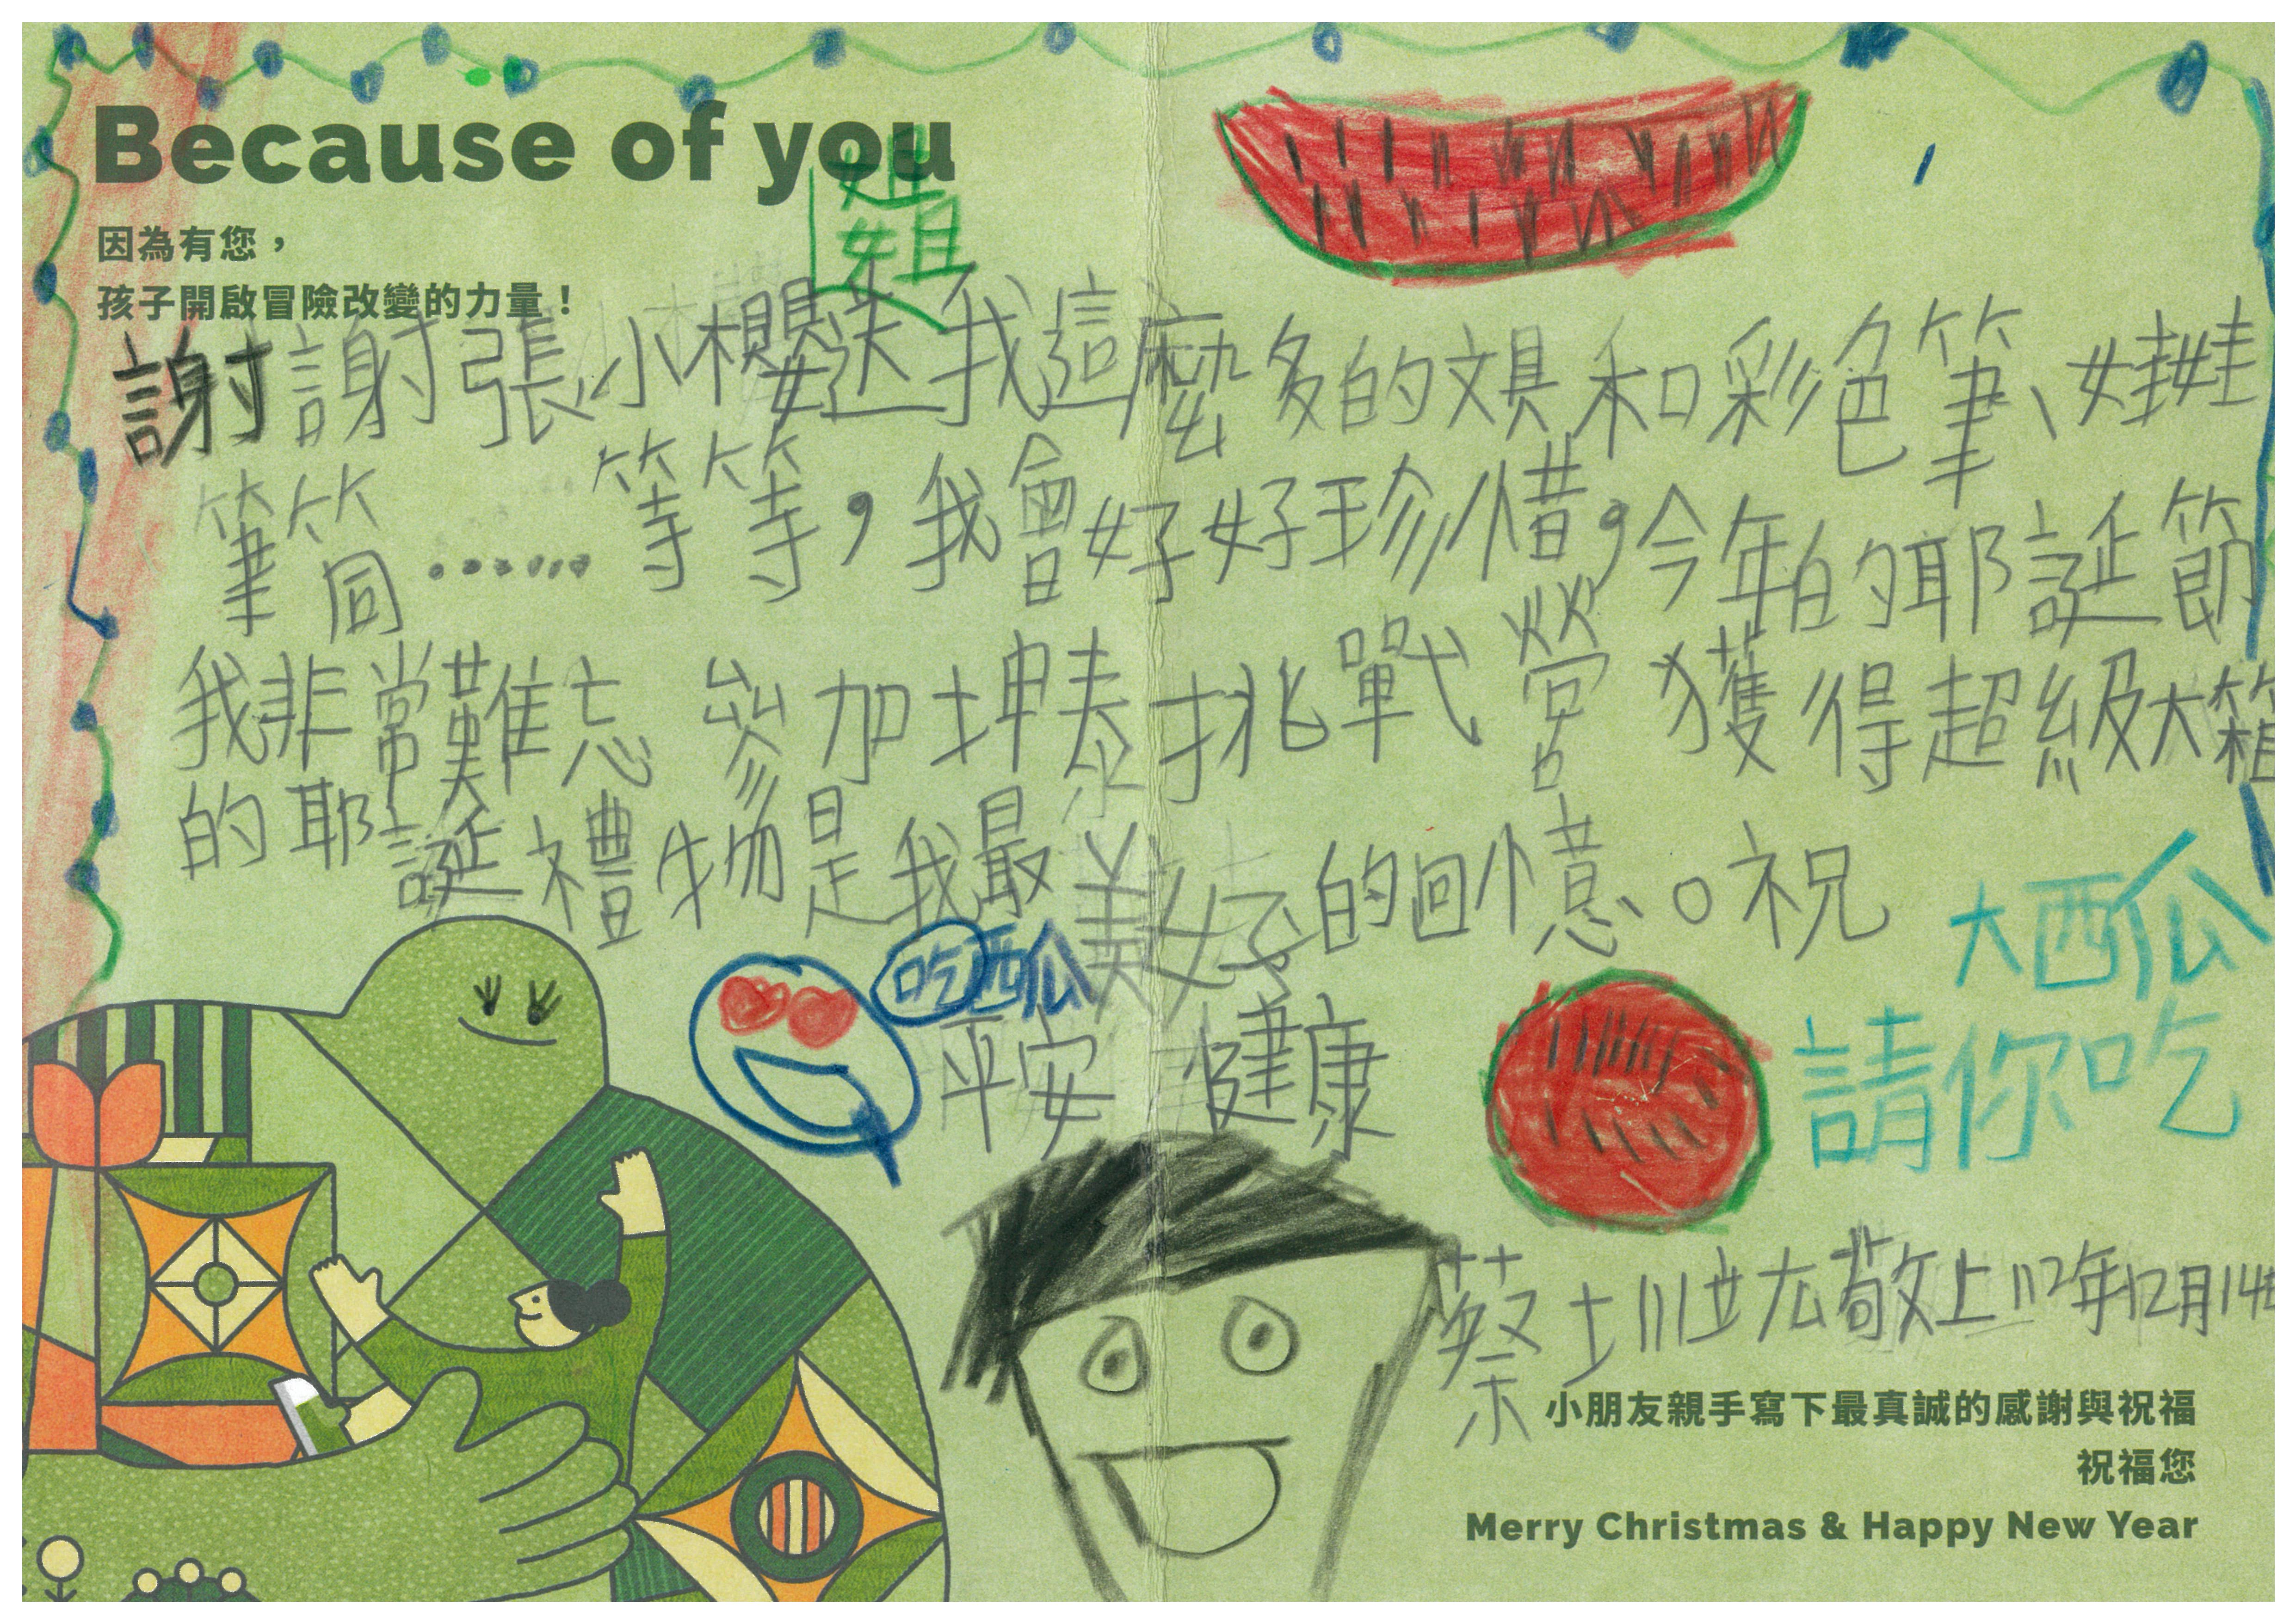 Because of you
因為有您，
孩子開啟冒險改變的力量！
姐姐
謝謝張小櫻送我這麼多的文具和彩色筆、娃娃
筆筒……等等，我會好好珍惜，今年的耶誕節
我非常難忘 參加坤泰挑戰營 獲得超級大箱
的耶誕禮物是我最美好的回憶。祝
大西瓜
請你吃
吃西瓜
平安 健康
蔡 敬上 112年12月14
小朋友親手寫下最真誠的感謝與祝福
祝福您
Merry Christmas & Happy New Year